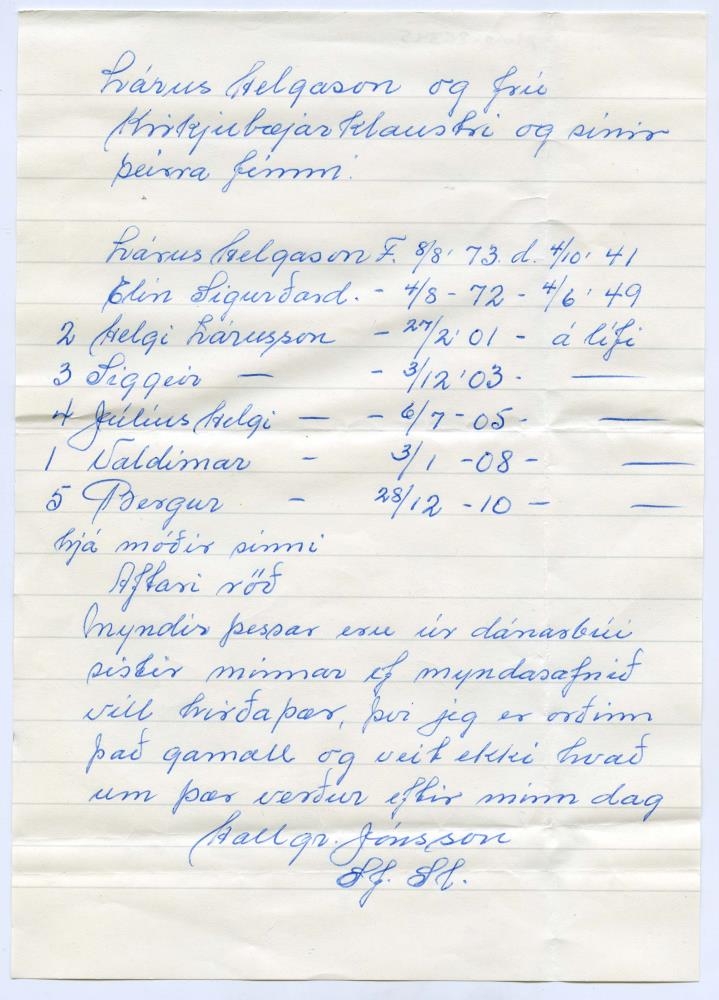 Lárus Helgason og frú
Kirkjubæjarklaustri og sinir
þeirra fimm.
Lárus Helgason F. 8/8' 73. d. 4/10' 41
Elín Sigurðard. - 4/8 - 72 - 4/6' 49
2 Helgi Lárusson - 27/2' 01 - á lífi
3 Siggeir — - 3/12' 03 - —
4 Júlíus Helgi — - 6/7 - 05 - —
1 Valdimar - 3/1 - 08 - —
5 Bergur - 28/12 - 10 - —
hjá móðir sinni
Aftari röð
Myndir þessar eru úr dánarbúi
sistir minnar ef myndasafnið
vill hirða þær, þvi jeg er orðinn
það gamall og veit ekki hvað
um þær verður eftir minn dag
Hallgr. Jónsson